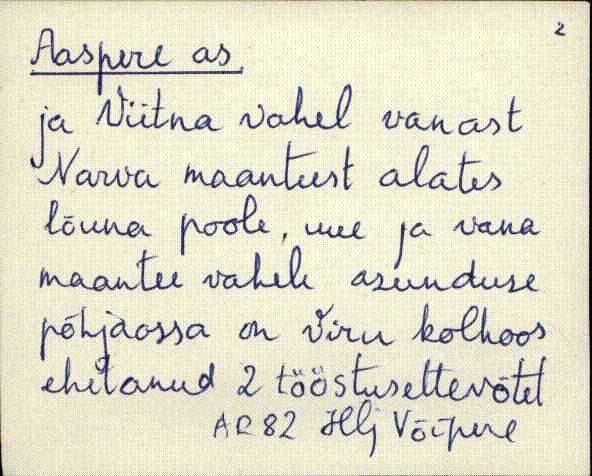 2
Aaspere as.
ja Viitna vahel vanast
Narva maanteest alates
lõuna poole, uue ja vana
maantee vahele asunduse
põhjaossa on Viru kolhoos
ehitanud 2 tööstusettevõtet
AR 82 Hlj Võipere